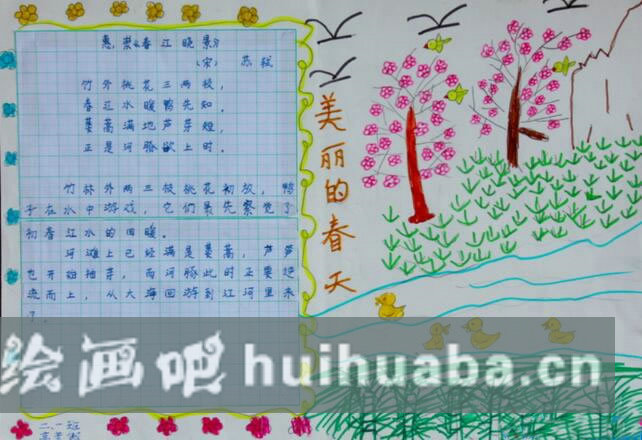 惠崇《春江晓景》
(宋) 苏轼
竹外桃花三两枝,
春江水暖鸭先知。
蒌蒿满地芦芽短,
正是河豚欲上时。
竹林外两三枝桃花初放,鸭
子在水中游戏,它们最先察觉了
初春江水的回暖。
河滩上已经满是蒌蒿,芦笋
也开始抽芽,而河豚此时正要逆
流而上,从大海回游到江河里来
了。
美丽的春天
绘画吧 huihuaba.cn
二.一班